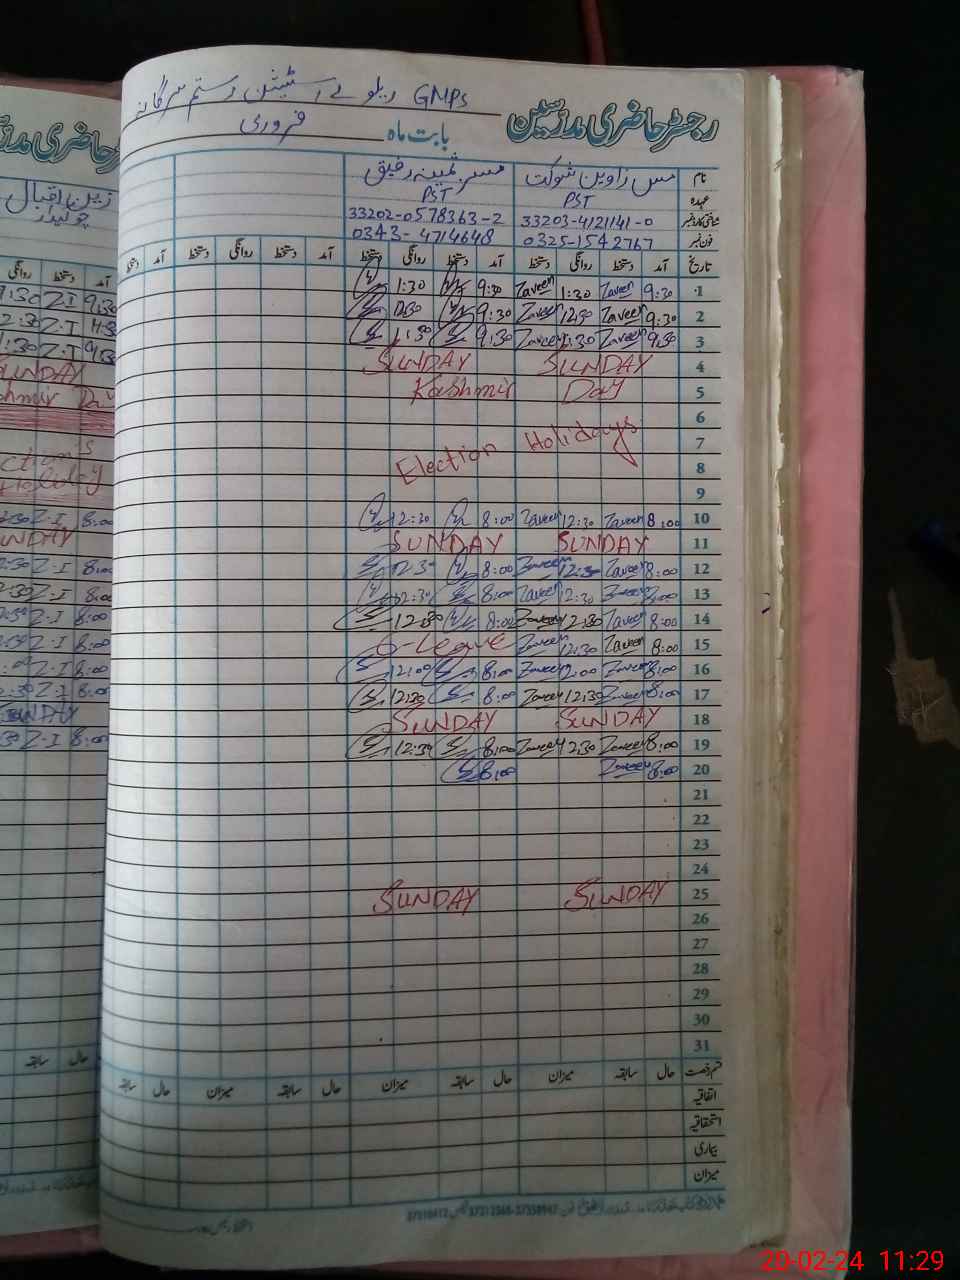 GMPS ریلوے اسٹیشن رستم سرگانہ
رجسٹر حاضری مدرسین بابت ماہ فروری
نام مس زاوین شوکت مسز ثمینہ رفیق
عہدہ PST PST
شناختی کارڈ نمبر 33203-4121141-0 33202-0578363-2
فون نمبر 0325-1542767 0343-4714648
تاریخ آمد دستخط روانگی دستخط آمد دستخط روانگی دستخط آمد دستخط روانگی دستخط آمد دستخط
1 9:30 Zaveen 1:30 Zaveen 9:30 1:30
2 9:30 Zaveen 12:30 Zaveen 9:30 12:30
3 9:30 Zaveen 1:30 Zaveen 9:30 1:30
4 SUNDAY SUNDAY
5 Kashmir Day
6
7 Election Holidays
8
9
10 8:00 Zaveen 12:30 Zaveen 8:00 12:30
11 SUNDAY SUNDAY
12 8:00 Zaveen 12:30 Zaveen 8:00 12:30
13 8:00 Zaveen 12:30 Zaveen 8:00 12:30
14 8:00 Zaveen 12:30 Zaveen 8:00 12:30
15 8:00 Zaveen 12:30 Zaveen Leave
16 8:00 Zaveen 12:00 Zaveen 8:00 12:00
17 8:00 Zaveen 12:30 Zaveen 8:00 12:30
18 SUNDAY SUNDAY
19 8:00 Zaveen 12:30 Zaveen 8:00 12:30
20 8:00 Zaveen 8:00
21
22
23
24
25 SUNDAY SUNDAY
26
27
28
29
30
31
قسم رخصت حال سابقہ میزان حال سابقہ میزان حال سابقہ میزان حال سابقہ
اتفاقیہ
استحقاقیہ
بیماری
میزان
رجسٹر حاضری
زین اقبال
چوکیدار
آمد دستخط روانگی
9:30 Z.I 9:30
Z.I
Z.I 1:30
SUNDAY
Kashmir Day
Holiday
8:00 Z.I
SUNDAY
8:00 Z.I
8:00 Z.I
8:00 Z.I
8:00 Z.I
8:00 Z.I
8:00 Z.I
SUNDAY
8:00 Z.I
حال سابقہ
20-02-24 11:29